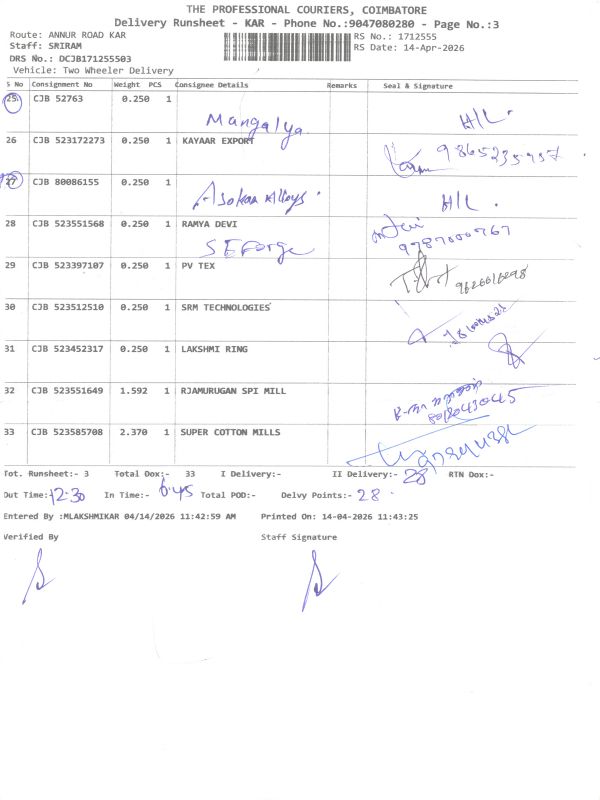 THE PROFESSIONAL COURIERS, COIMBATORE
Delivery Runsheet - KAR - Phone No.:9047080280 - Page No.:3
Route: ANNUR ROAD KAR RS No.: 1712555
Staff: SRIRAM RS Date: 14-Apr-2026
DRS No.: DCJB171255503
Vehicle: Two Wheeler Delivery
S No Consignment No Weight PCS Consignee Details Remarks Seal & Signature
25 CJB 52763 0.250 1 Mangalya H/L.
26 CJB 523172273 0.250 1 KAYAAR EXPORT
27 CJB 80086155 0.250 1 Asokaa Alloys. H/L.
28 CJB 523551568 0.250 1 RAMYA DEVI
SE Forge
29 CJB 523397107 0.250 1 PV TEX
30 CJB 523512510 0.250 1 SRM TECHNOLOGIES
31 CJB 523452317 0.250 1 LAKSHMI RING
32 CJB 523551649 1.592 1 RJAMURUGAN SPI MILL
33 CJB 523585708 2.370 1 SUPER COTTON MILLS
Tot. Runsheet:- 3 Total Dox:- 33 I Delivery:- II Delivery:- 28 RTN Dox:-
Out Time:- 12.30 In Time:- 6.45 Total POD:- Delvy Points:- 28.
Entered By :MLAKSHMIKAR 04/14/2026 11:42:59 AM Printed On: 14-04-2026 11:43:25
Verified By Staff Signature